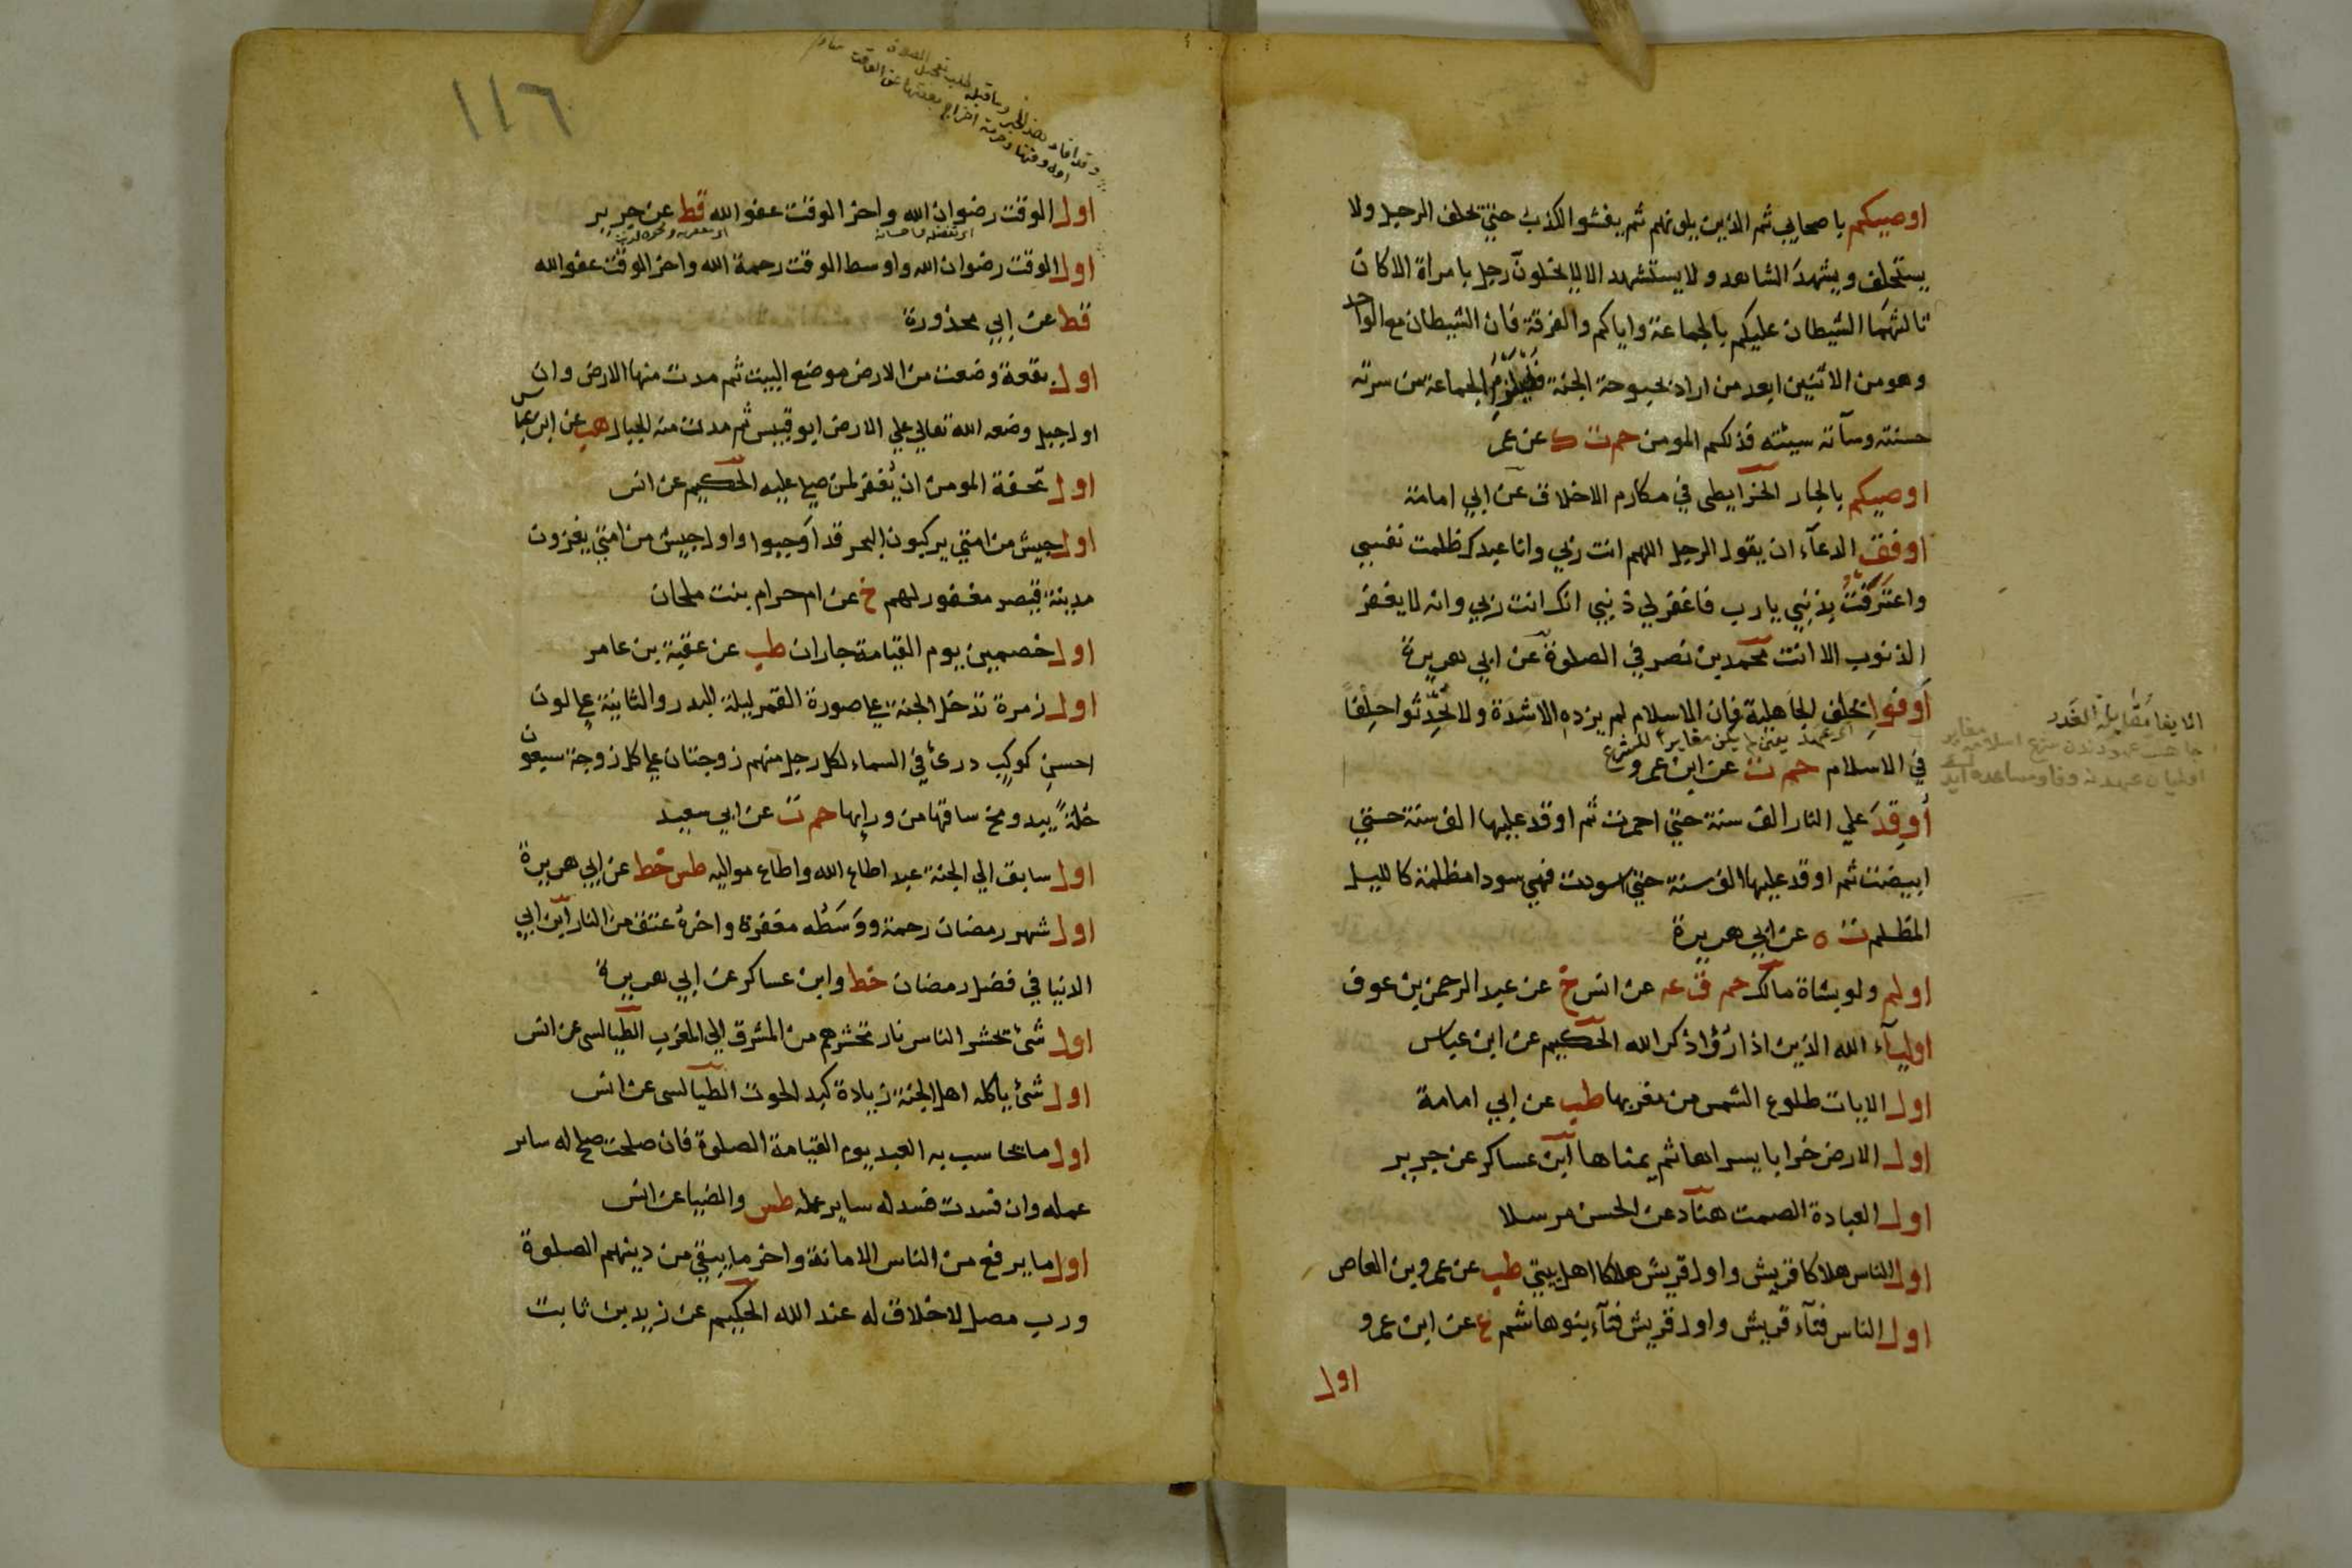 اوصيكم باصحابي ثم الذين يلونهم ثم يفشوا الكذب حتي يحلف الرجل ولا
يستحلف ويشهد الشاهد ولا يستشهد الا لا يخلون رجل بامراة الا كان
ثالثهما الشيطان عليكم بالجماعة واياكم والفرقة فان الشيطان مع الواحد
وهو من الاثنين ابعد من اراد بحبوحة الجنة فليلزم الجماعة من سرته
حسنته وسآته سيئته فذلكم المومن حم ت ك عن عمر
اوصيكم بالجار الخرايطى في مكارم الاخلاق عن ابي امامة
اوفق الدعآء ان يقول الرجل اللهم انت ربي وانا عبدك ظلمت نفسي
واعترفت بذنبي يا رب فاغفر لي ذنبي انك انت ربي وانه لا يغفر
الذنوب الا انت محمد بن نصر في الصلوة عن ابي هريرة
أوفوا بحلف الجاهلية فان الاسلام لم يزده الا شدة ولا تحدثوا حلفا
في الاسلام حم ت عن ابن عمرو
الايفا مقابلة الغدر
أوقد علي النار الف سنة حتي احمرت ثم اوقد عليها الف سنة حتي
ابيضت ثم اوقد عليها الف سنة حتي اسودت فهي سودا مظلمة كالليل
المظلم ت ه عن ابي هريرة
اولم ولو بشاة مالك حم ق عه عن انس خ عن عبد الرحمن بن عوف
اوليآء الله الذين اذا رؤا ذكر الله الحكيم عن ابن عباس
اول الايات طلوع الشمس من مغربها طب عن ابي امامة
اول الارض خرابا يسراها ثم يمناها ابن عساكر عن جرير
اول العبادة الصمت هناد عن الحسن مرسلا
اول الناس هلاكا قريش واول قريش هلاكا اهل بيتي طب عن عمرو بن العاص
اول الناس فنآء قريش واول قريش فنآء بنو هاشم ع عن ابن عمرو
اول
١١٦
اول الوقت رضوان الله واخر الوقت عفو الله قط عن جرير
اول الوقت رضوان الله واوسط الوقت رحمة الله واخر الوقت عفو الله
قط عن ابي محذورة
اول بقعة وضعت من الارض موضع البيت ثم مدت منها الارض وان
اول جبل وضعه الله تعالي علي الارض ابو قبيس ثم مدت منه الجبال هب عن ابن عباس
اول تحفة المومن ان يغفر لمن صلي عليه الحكيم عن انس
اول جيش من امتي يركبون البحر قد اوجبوا واول جيش من امتي يغزون
مدينة قيصر مغفور لهم خ عن ام حرام بنت ملحان
اول خصمين يوم القيامة جاران طب عن عقبة بن عامر
اول زمرة تدخل الجنة علي صورة القمر ليلة البدر والثانية علي لون
احسن كوكب درئ في السماء لكل رجل منهم زوجتان علي كل زوجة سبعون
حلة يبدو مخ ساقها من ورايها حم ت عن ابي سعيد
اول سابق الي الجنة عبد اطاع الله واطاع مواليه طس خط عن ابي هريرة
اول شهر رمضان رحمة ووسطه مغفرة واخره عتق من النار ابن ابي
الدنيا في فضل رمضان خط وابن عساكر عن ابي هريرة
اول شئ تحشر الناس نار تحشرهم من المشرق الي المغرب الطيالسى عن انس
اول شئ ياكله اهل الجنة زيادة كبد الحوت الطيالسى عن انس
اول ما يحاسب به العبد يوم القيامة الصلوة فان صلحت صلح له ساير
عمله وان فسدت فسد له ساير عمله طس والضيا عن انس
اول ما يرفع من الناس الامانة واخر ما يبقي من دينهم الصلوة
ورب مصل لا خلاق له عند الله الحكيم عن زيد بن ثابت